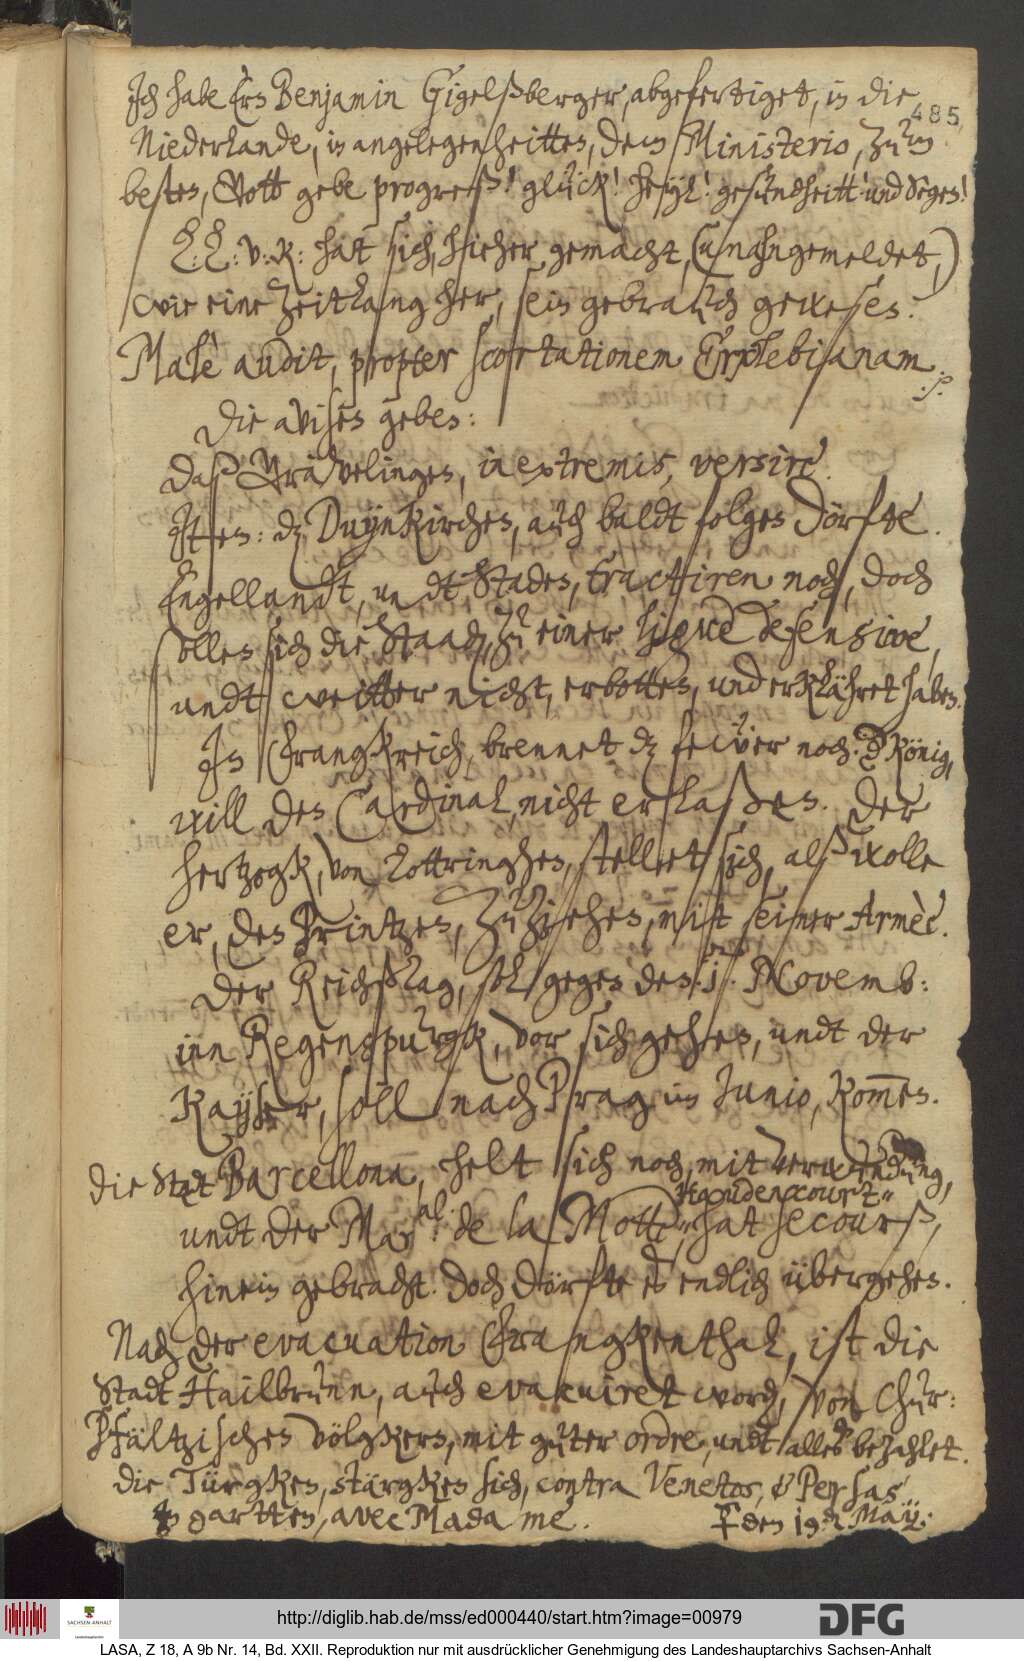 Ich habe Ern Benjamin Gigelßberger, abgefertiget, in die
485.
Niederlande, in angelegenheitten, dem Ministerio, zum
besten, Gott gebe progreß! glück! heyl! gesundheitt! und Segen!
E. E: v: K: hat sich, hieher gemacht, (unahngemeldet,)
wie eine zeitlang her, sein gebrauch gewesen.
Malè audit, propter scortationem Erxlebianam ./.
Die avisen geben:
Daß Grävelingen, in extremis, versire.
Itten: dz Duynkirchen, auch baldt folgen dörfte.
Engellandt, undt Staden, tractiren noch, doch
sollen sich die Staadn, zu einer ligue defensive,
undt weitter nicht, erbotten, und erklähret haben.
In Frangkreich, brennet dz fewer noch. Der König,
will den Cardinal, nicht erlaßen. Der
Hertzogk, von Lottringhen, stellet sich, alß wolle
er, den Printzen, zuziehen, mit seiner Armèe.
Der Reichßtag, sol gegen den: 1. Novemb:
inn Regenspurgk, vor sich gehen, undt der
Kayser, soll nach Prag im Junio, kommen.
Die Stadt Barcellona, helt sich noch, mit verwendung,
undt der Maral: de la Motte Houdencourt hat secourß,
hinein gebracht. Doch dörfte es endlich übergehen.
Nach der evacuation Frangkenthal, ist die
Stadt Hailbrunn, auch evacuiret word, von Chur:
Pfältzischen völgkern, mit guter ordre, undt alles bezahlet.
Die Türgken, stärgken sich, contra Venetos, & Persas
In gartten, avec Madame. ☿ den 19.den May:
http://diglib.hab.de/mss/ed000440/start.htm?image=00979
SACHSEN-ANHALT
DFG
LASA, Z 18, A 9b Nr. 14, Bd. XXII. Reproduktion nur mit ausdrücklicher Genehmigung des Landeshauptarchivs Sachsen-Anhalt